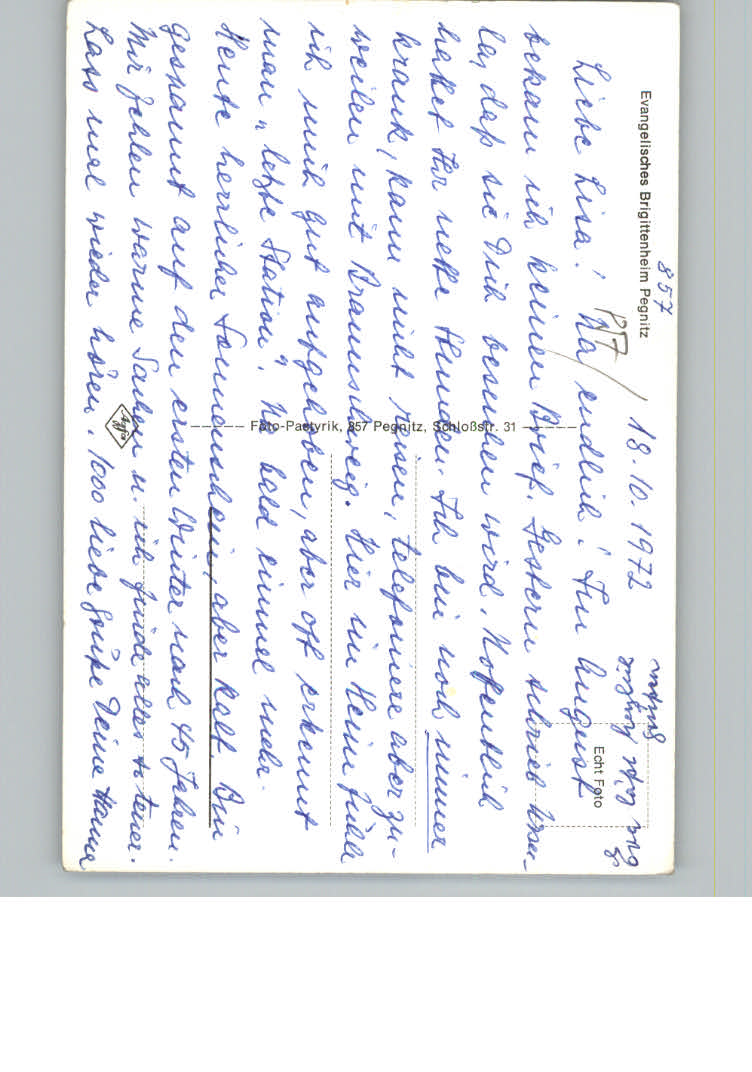 Evangelisches Brigittenheim Pegnitz
857
18.10.1972
Liebe Lisa! Na endlich! Im August
bekam ich keinen Brief. Gestern schrieb Ursu-
la, daß sie Dich besuchen wird. Hoffentlich
habet Ihr nette Stunden. Ich bin noch immer
krank, kann nicht reisen, telefoniere aber zu-
weilen mit Braunschweig. Hier im Heim fühle
ich mich gut aufgehoben, aber oft erkennt
man „letzte Station". Na bald einmal mehr.
Heute herrlicher Sonnenschein, aber kalt. Bin
gespannt auf den ersten Winter nach 45 Jahren.
Mir fehlen warme Sachen u. ich finde alles so teuer.
Lass mal wieder hören. 1000 liebe Grüße Deine Hanna
Echt Foto
Foto-Paetyrik, 857 Pegnitz, Schloßstr. 31
Agfa